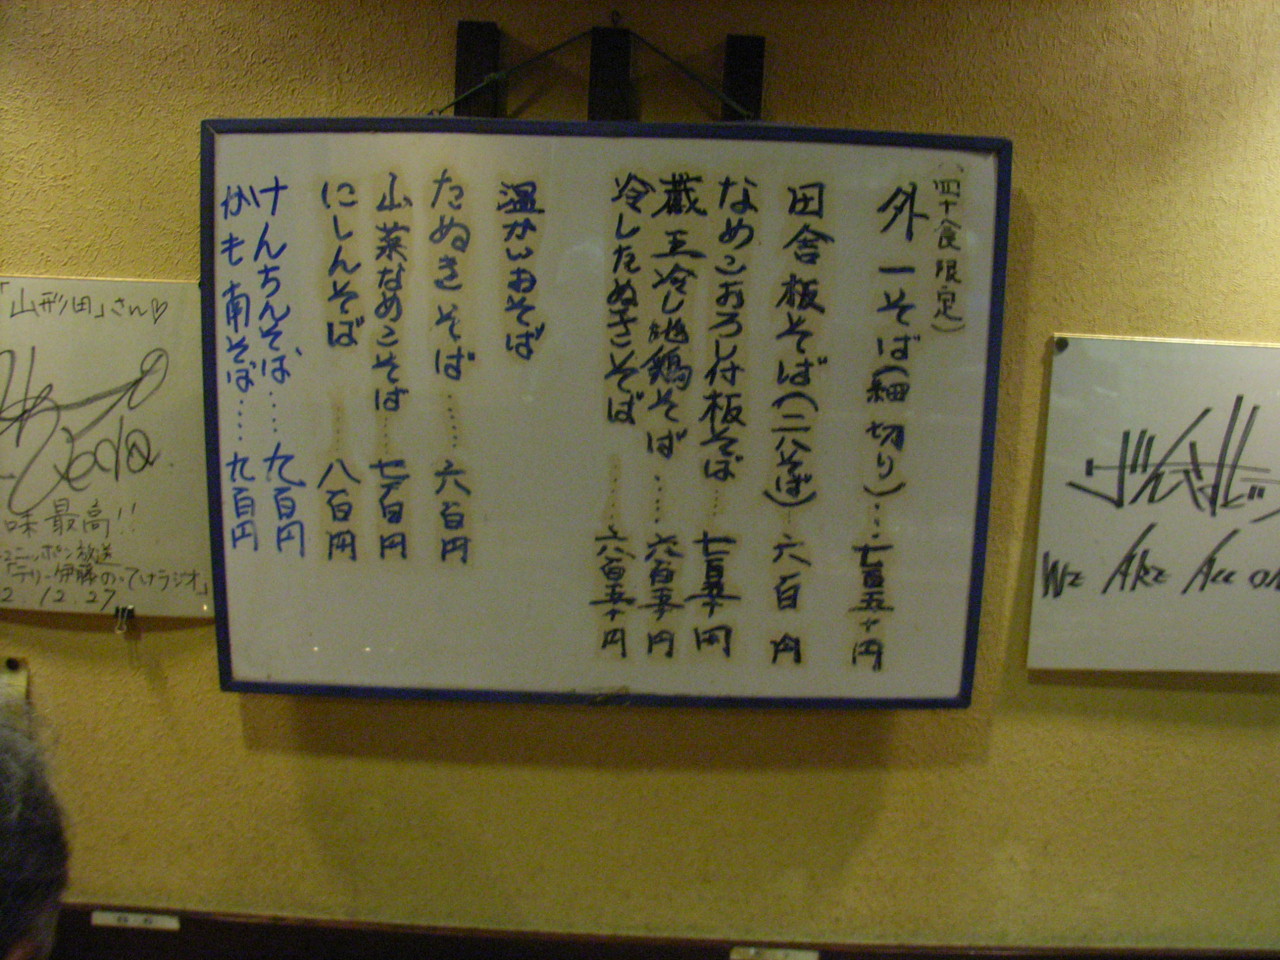 (四十食限定)
外一そば(細切り)‥七百五十円
田舎板そば(二八そば)‥六百円
なめこおろし付板そば‥‥七百五十円
蔵王冷し地鶏そば‥‥六百五十円
冷したぬきそば‥‥六百五十円
温かいおそば
たぬきそば‥‥六百円
山菜なめこそば‥‥七百円
にしんそば‥‥八百円
けんちんそば‥‥九百円
かも南そば‥‥九百円
「山形田」さん♡
味最高!!
ニッポン放送
「テリー伊藤のってけラジオ」
2.12.27
We Are All On